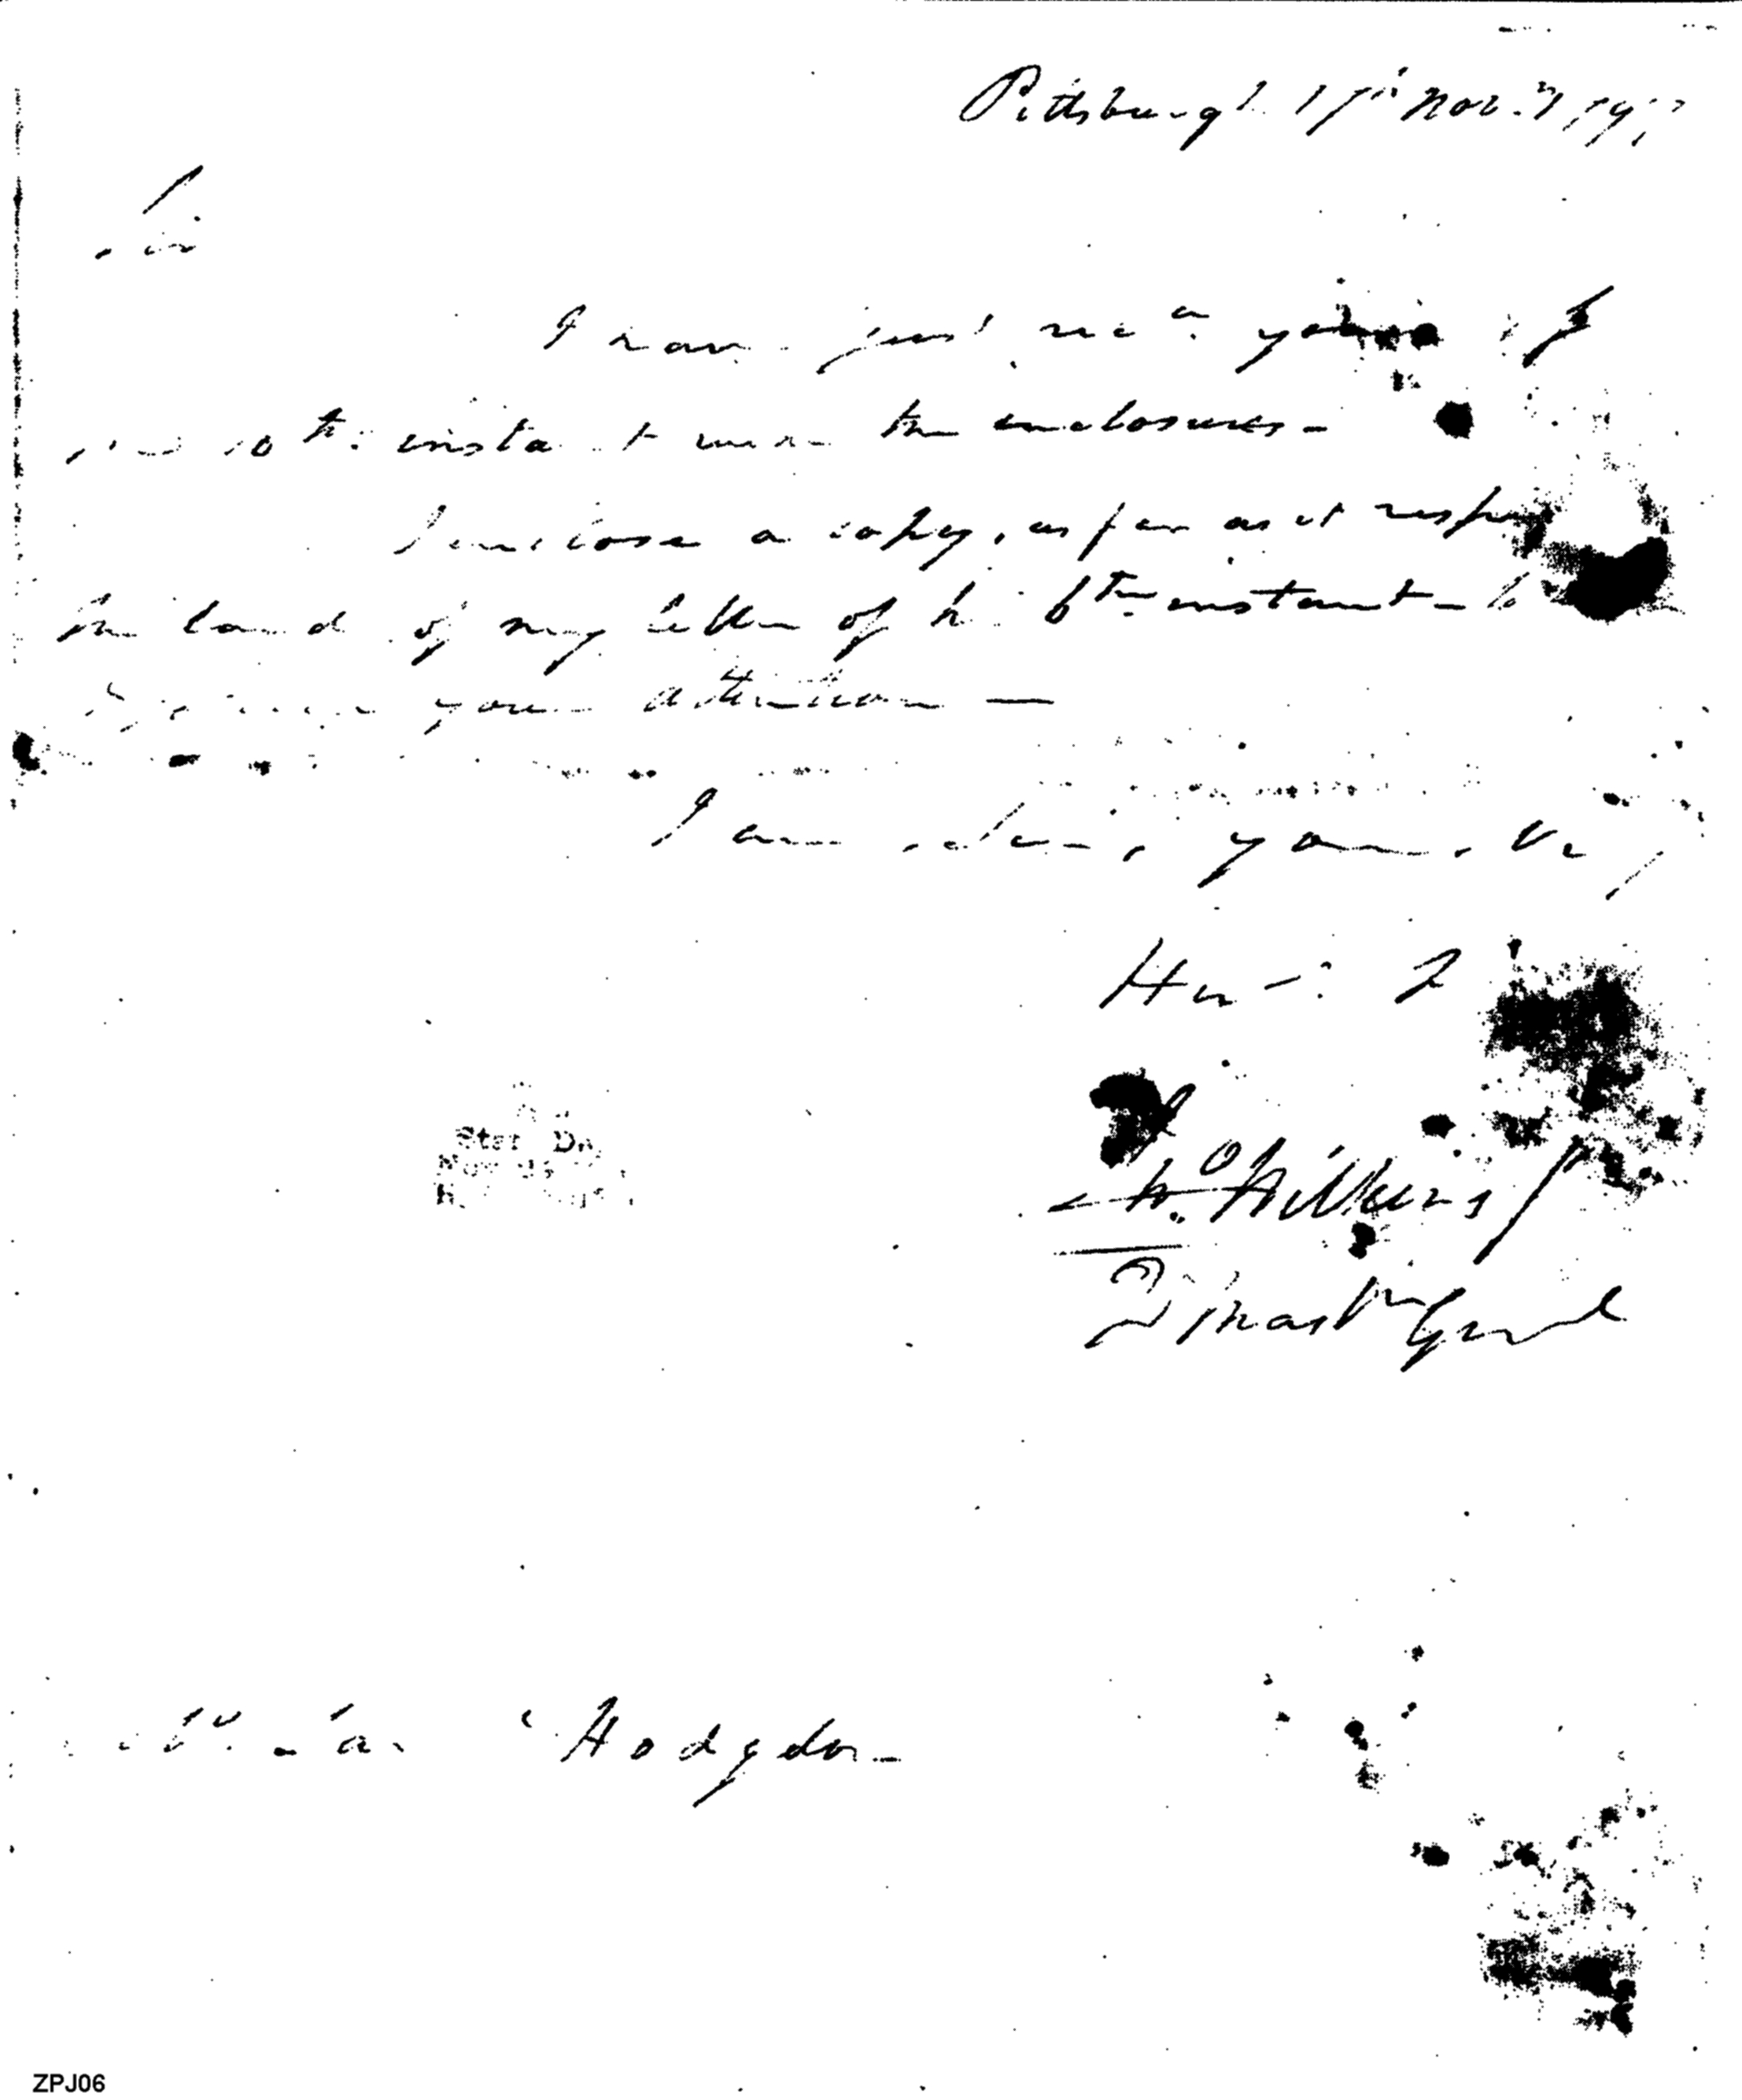 Pittsburgh 17th Nov. 179
Sir
I have just rec'd yours of
the 10th instant with the enclosures -
I enclose a copy, as far as it respects
the land of my letter of the 6th instant - to
your attention —
I am, Sir, yours, very
Hum.
Jno. Wilkins Jr
Qr Mastr Genl
Hodgdon
ZPJ06